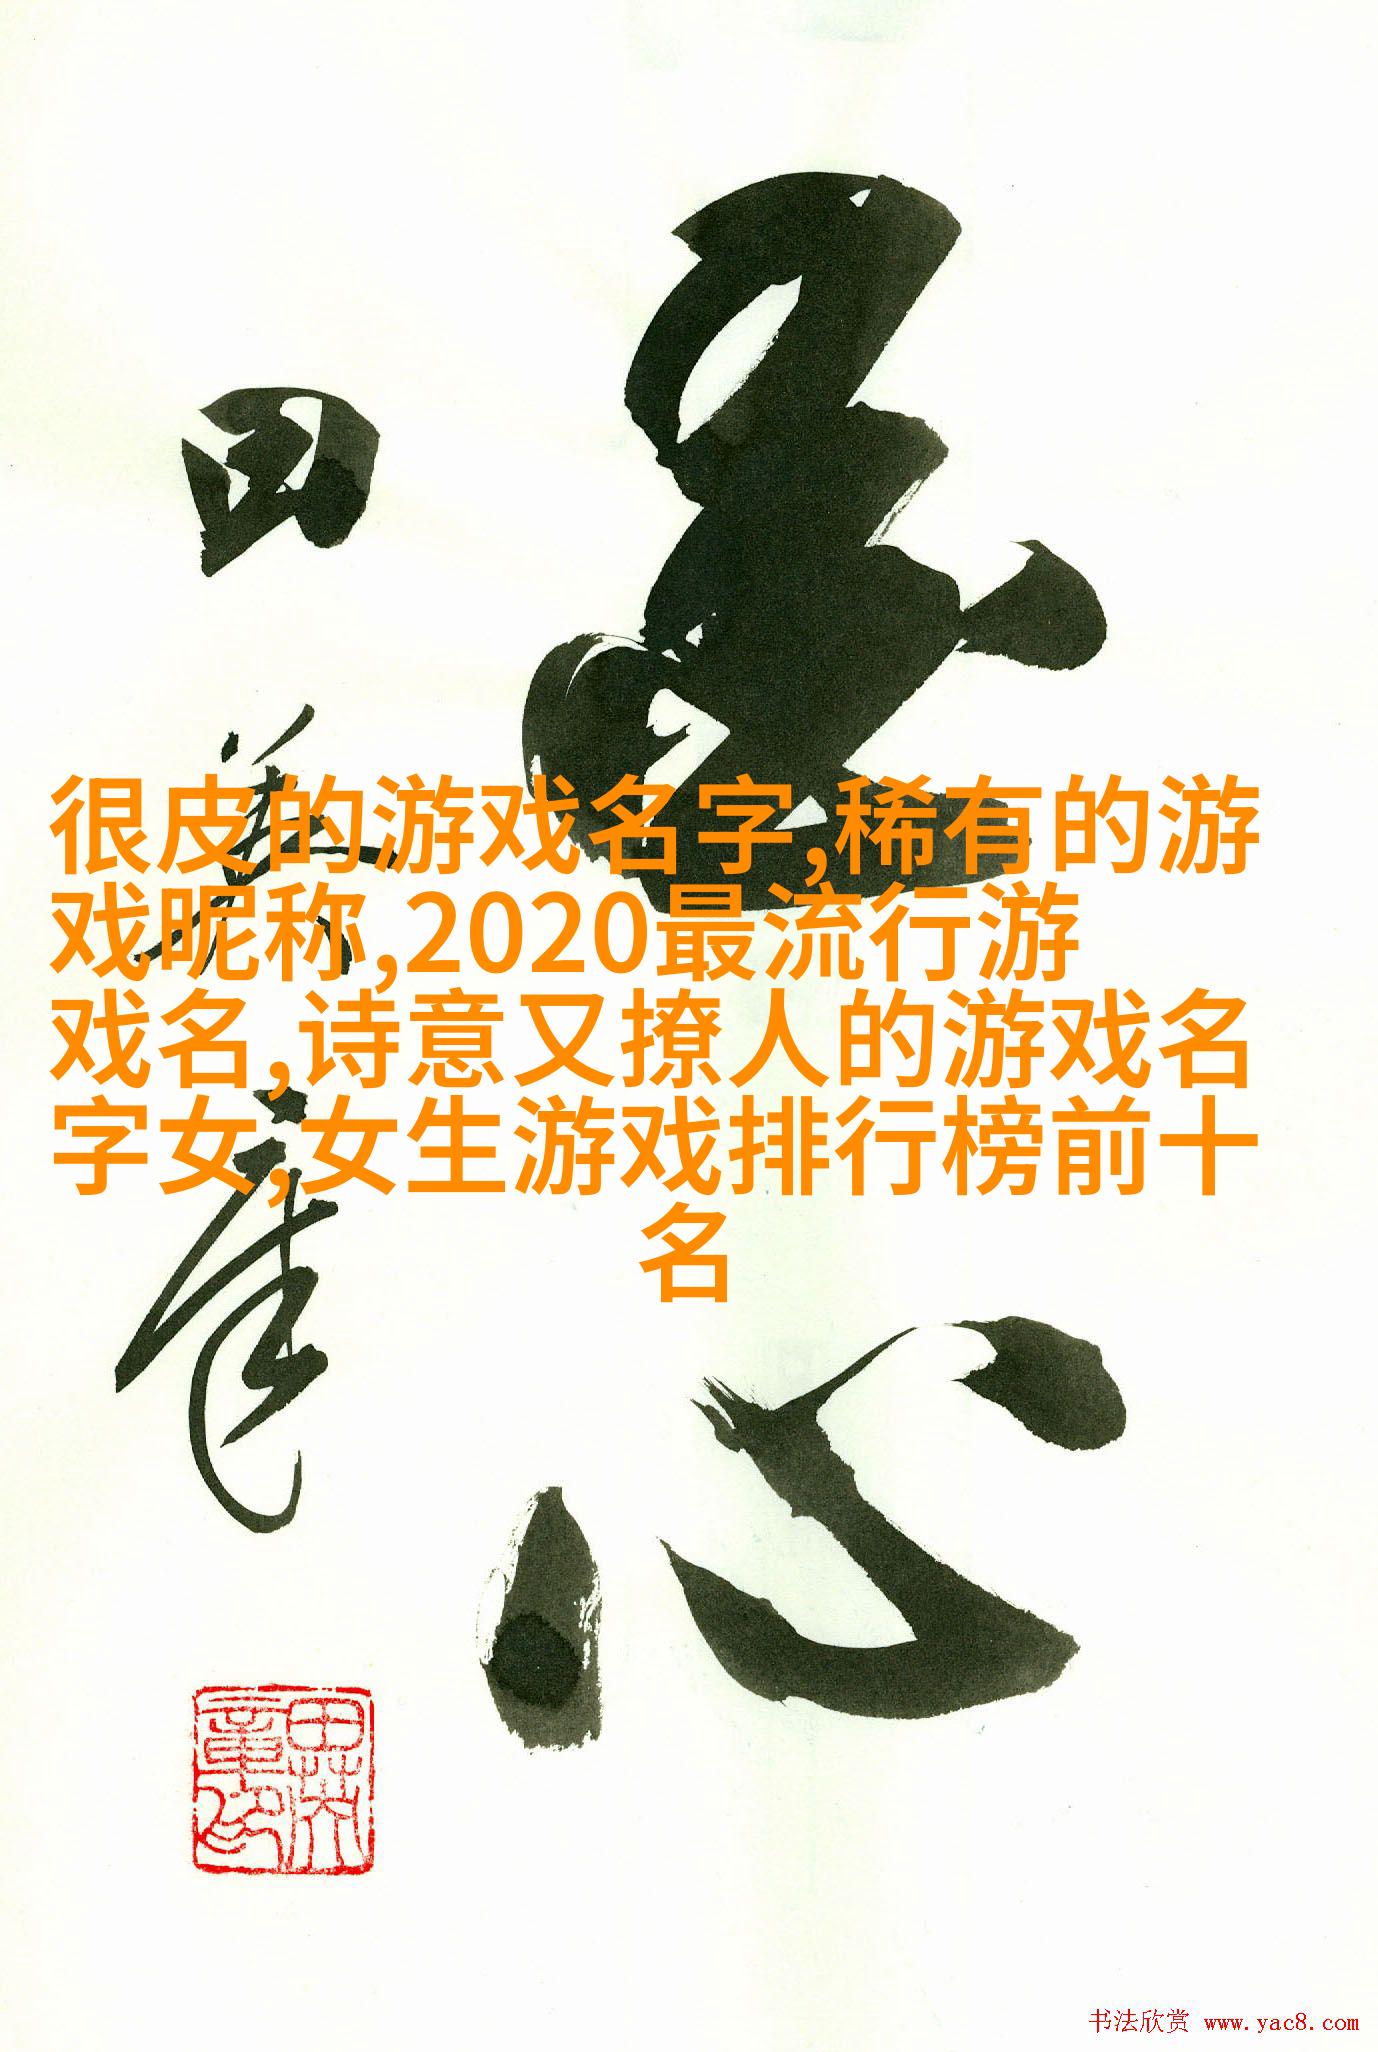 很皮的游戏名字,稀有的游
戏昵称,2020最流行游
戏名,诗意又撩人的游戏名
字女,女生游戏排行榜前十
名
心
田英章
田英章印
书法欣赏 www.yac8.com